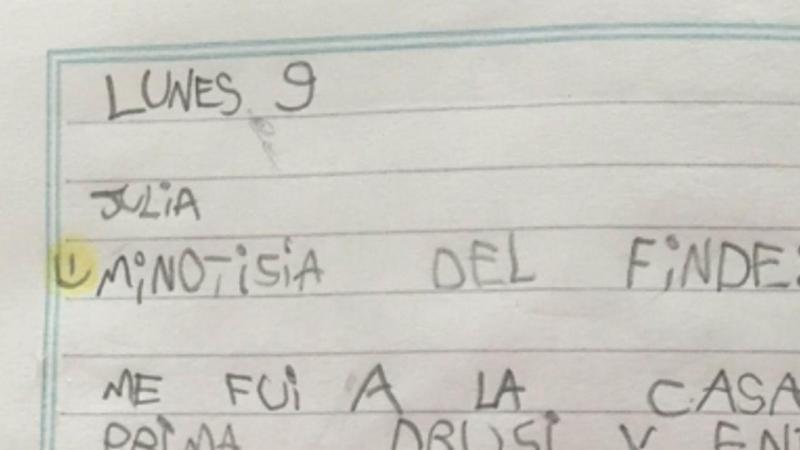 LUNES 9
JULiA
1 MiNOTiSiA DEL FiNDE:
ME FUi A LA CASA
PRiMA DRUSi Y EN